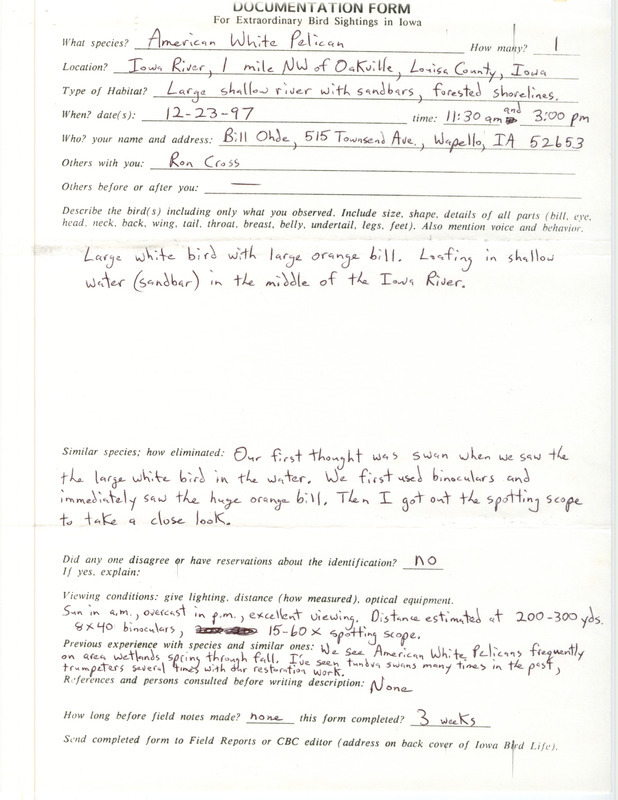 DOCUMENTATION FORM
For Extraordinary Bird Sightings in Iowa
What species? American White Pelican How many? 1
Location? Iowa River, 1 mile NW of Oakville, Louisa County, Iowa
Type of Habitat? Large shallow river with sandbars, forested shorelines.
When? date(s): 12-23-97 time: 11:30 am and 3:00 pm
Who? your name and address: Bill Ohde, 515 Townsend Ave., Wapello, IA 52653
Others with you: Ron Cross
Others before or after you: —
Describe the bird(s) including only what you observed. Include size, shape, details of all parts (bill, eye,
head, neck, back, wing, tail, throat, breast, belly, undertail, legs, feet). Also mention voice and behavior.
Large white bird with large orange bill. Loafing in shallow
water (sandbar) in the middle of the Iowa River.
Similar species; how eliminated: Our first thought was swan when we saw the
the large white bird in the water. We first used binoculars and
immediately saw the huge orange bill. Then I got out the spotting scope
to take a close look.
Did any one disagree or have reservations about the identification? no
If yes, explain:
Viewing conditions: give lighting, distance (how measured), optical equipment.
Sun in a.m., overcast in p.m., excellent viewing. Distance estimated at 200-300 yds.
8x40 binoculars, 15-60x spotting scope.
Previous experience with species and similar ones: We see American White Pelicans frequently
on area wetlands spring through fall. I've seen tundra swans many times in the past,
trumpeters several times with our restoration work.
References and persons consulted before writing description: None
How long before field notes made? none this form completed? 3 weeks
Send completed form to Field Reports or CBC editor (address on back cover of Iowa Bird Life).